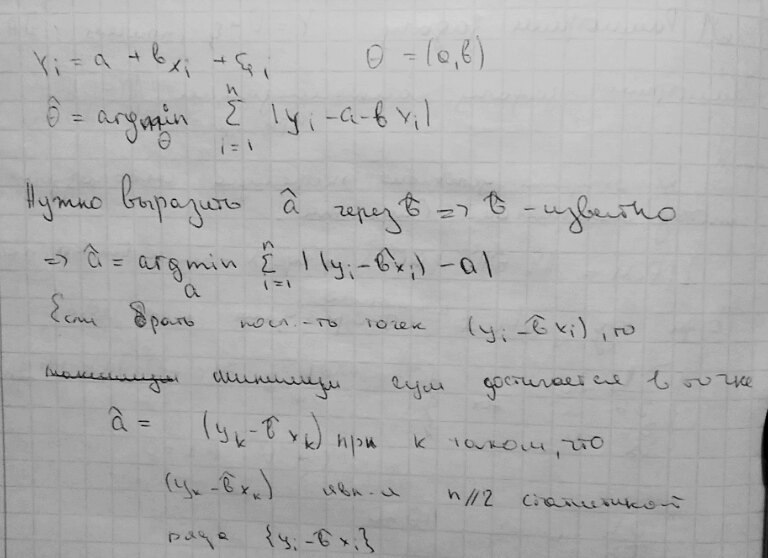 Y_i = a + bx_i + ξ_i θ = (a, b)
θ̂ = argmin_θ Σ_{i=1}^{n} |y_i - a - bx_i|
Нужно выразить â через b̂ => b̂ - известно
=> â = argmin_a Σ_{i=1}^{n} |(y_i - b̂x_i) - a|
Если брать посл.-ть точек (y_i - b̂x_i), то
минимум сум достигается в точке
â = (y_k - b̂x_k) при k таком, что
(y_k - b̂x_k) явл-я n//2 статистикой
ряда {y_i - b̂x_i}